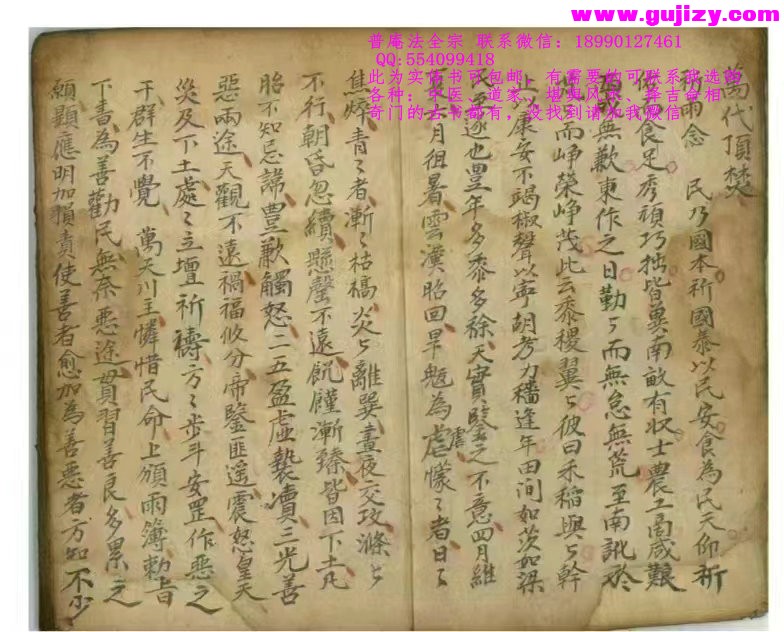 www.gujizy.com
普庵法全宗 联系微信：18990127461
QQ:554099418
此为实体书可包邮，有需要的可联系我选购
各种：中医、道家、堪舆风水、择吉命相
奇门的古书都有，没找到请加我微信
萬代頂焚
祈雨念 民乃國本祈國泰以民安食為民天仰祈
食足秀頑巧拙皆冀南畝有收士農工啇咸艱
或無歉東作之日勤〻而無怠無荒至南訛於
而崢榮崢茂此云黍稷翼〻彼曰禾稲與〻幹
止以康安不竭椒聲以寧胡考力穡逢年田间如茨如梁
遂也豊年多黍多稌天實鑒之不意四月維
六月徂暑雲漢昭回旱魃為虐懞〻者日〻
焦焠青〻者漸〻枯槁炎〻離巽晝夜交攻滌〻
不行朝昏忽續懸罄不遠飢饉漸臻皆因下土凡
胎不知忌諱豊歉觸怒二五盈虚褻瀆三光善
惡兩途天觀不遠禍福攸分帝鑒匪遥震怒皇天
災及下土處〻立壇祈禱方〻步斗安罡作惡之
干群生不覺 萬天川主憐惜民命上頒雨簿勅旨
下書為善勸民無奈惡途貫習善良多累之
願顯應明加損責使善者愈加為善惡者方知不少